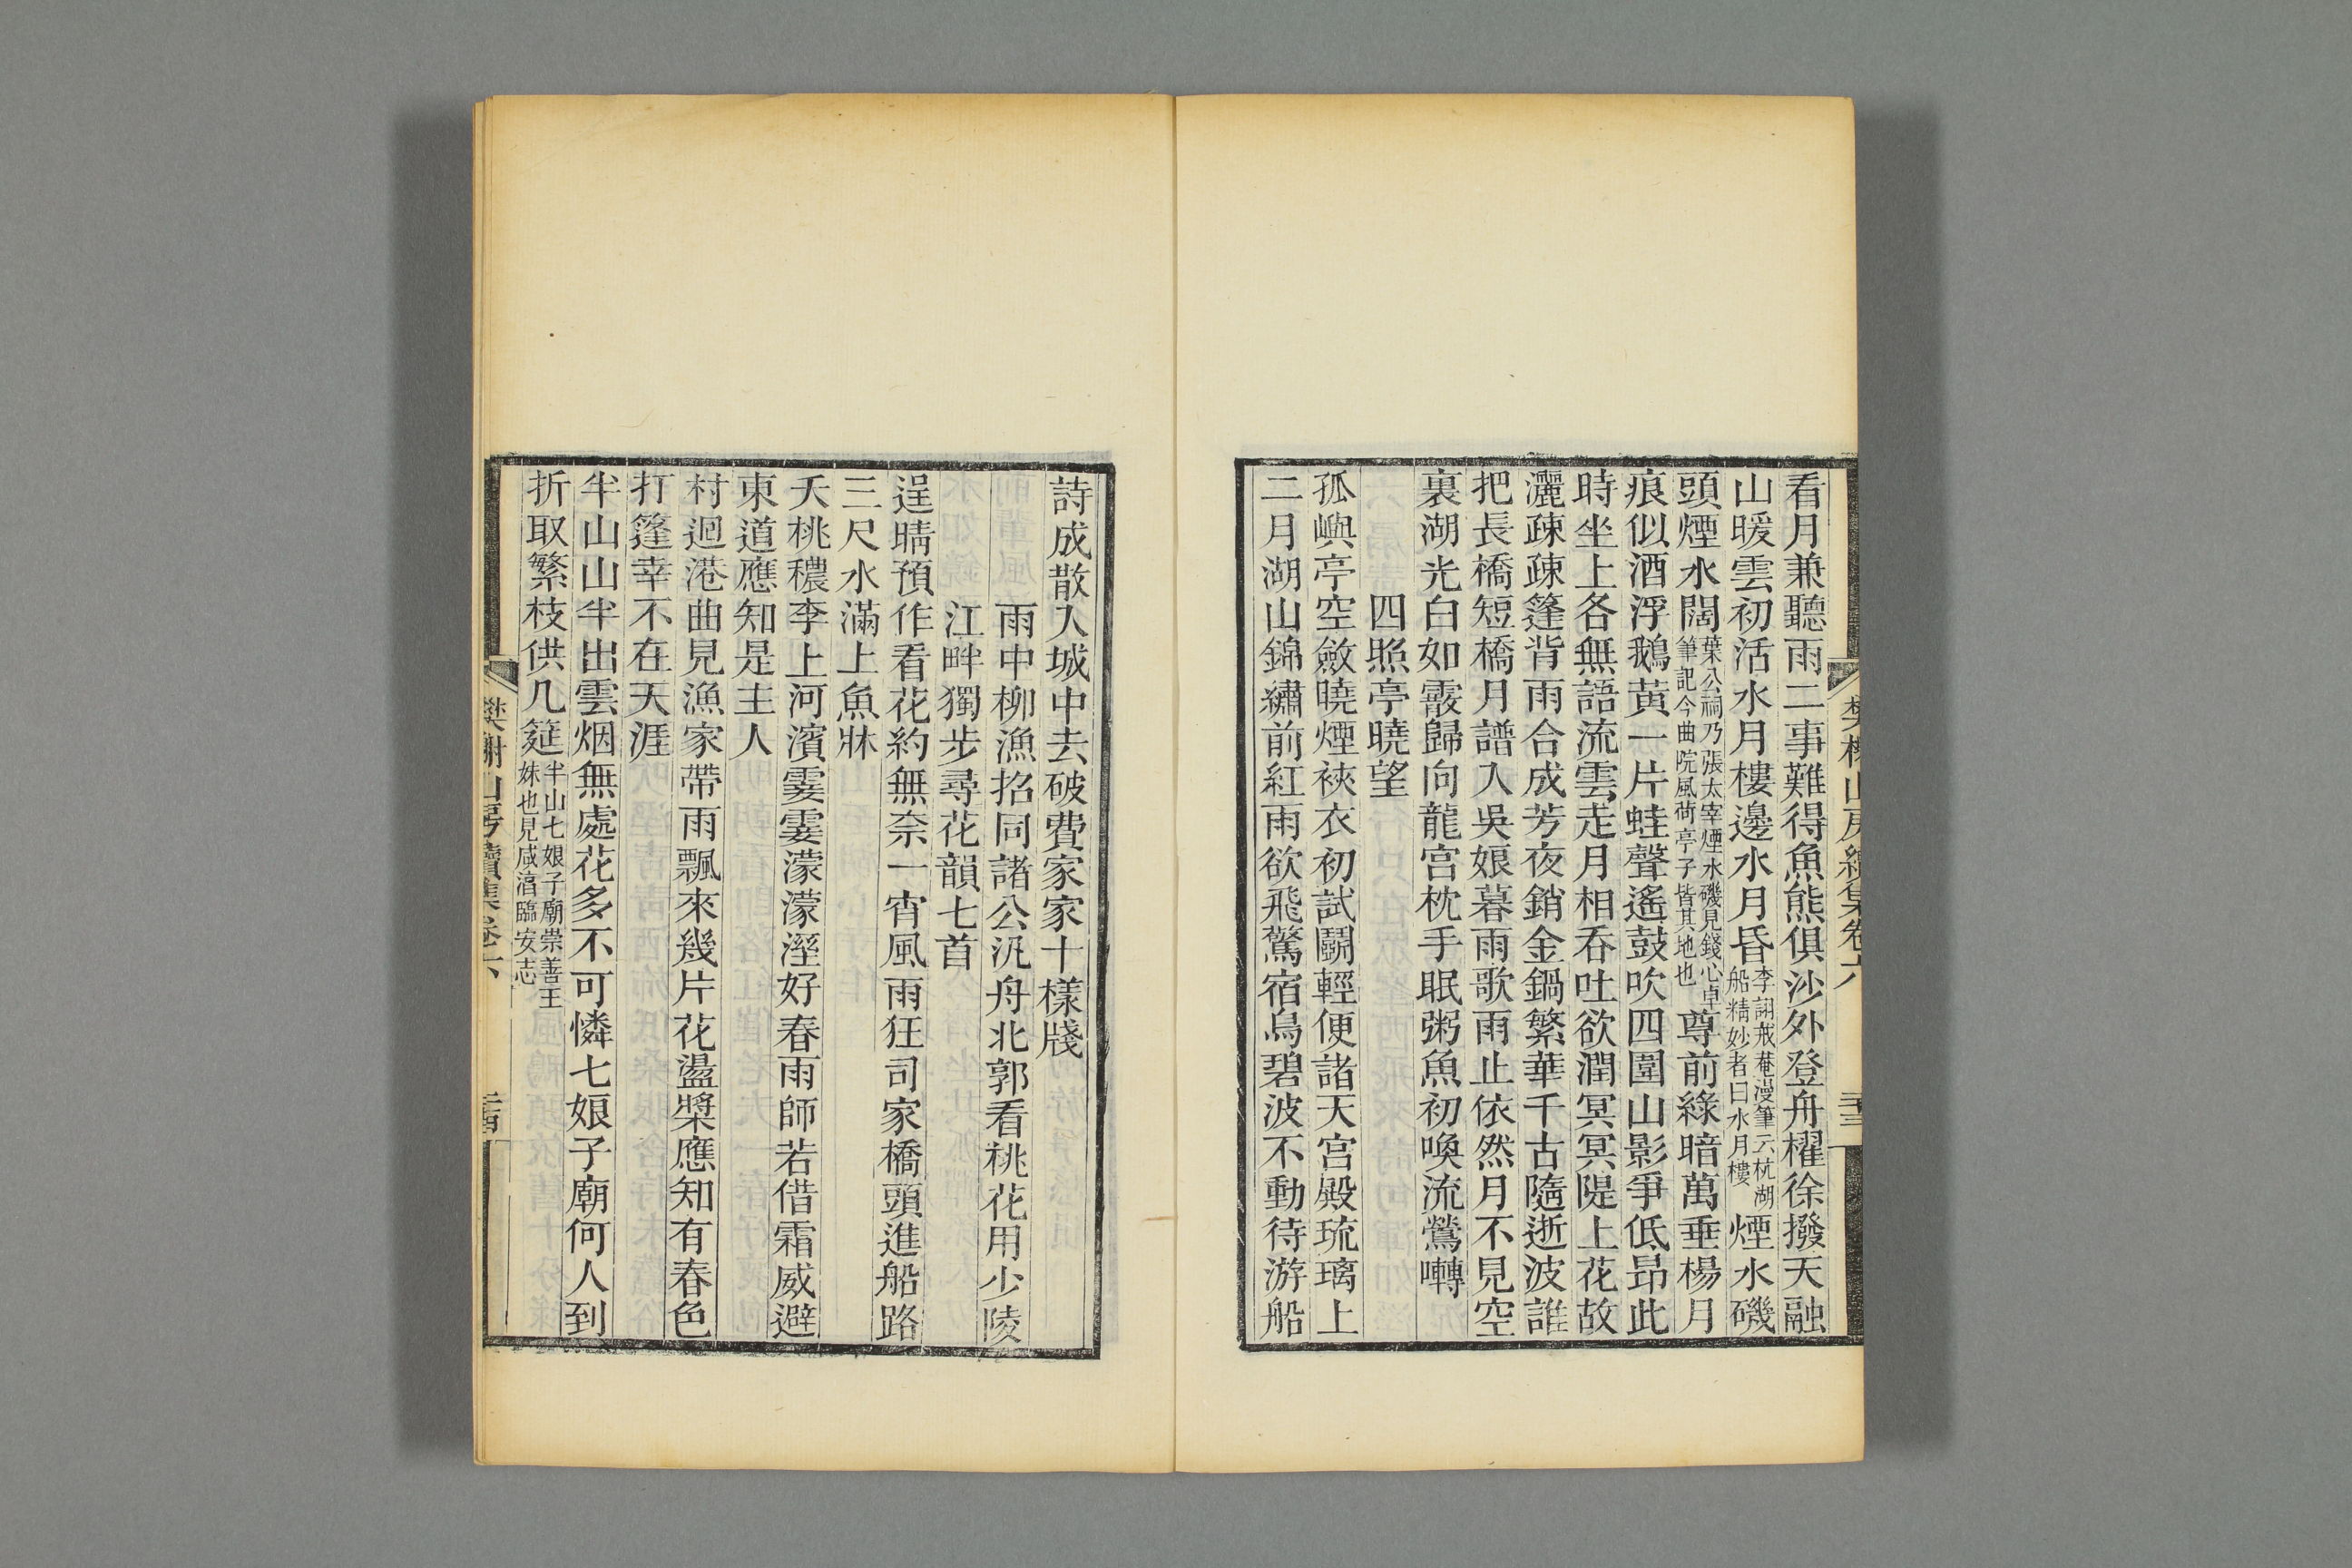 看月兼聽雨二事難得魚熊俱沙外登舟櫂徐撥天融
山暖雲初活水月樓邊水月昏李詡戒菴漫筆云杭湖船精妙者曰水月樓煙水磯
頭煙水闊葉公祠乃張太宰煙水磯見錢心卓筆記今曲院風荷亭子皆其地也尊前綠暗萬垂楊月
痕似酒浮鵝黃一片蛙聲遙鼓吹四圍山影爭低昂此
時坐上各無語流雲走月相吞吐欲潤冥冥隄上花故
灑疎疎篷背雨合成芳夜銷金鍋繁華千古隨逝波誰
把長橋短橋月譜入吳娘暮雨歌雨止依然月不見空
裏湖光白如霰歸向龍宮枕手眠粥魚初喚流鶯囀
四照亭曉望
孤嶼亭空斂曉煙裌衣初試鬭輕便諸天宮殿琉璃上
二月湖山錦繡前紅雨欲飛驚宿鳥碧波不動待游船
詩成散入城中去破費家家十樣牋
雨中柳漁招同諸公汎舟北郭看桃花用少陵
江畔獨步尋花韻七首
逞晴預作看花約無奈一宵風雨狂司家橋頭進船路
三尺水滿上魚牀
夭桃穠李上河濱霎霎濛濛溼好春雨師若借霜威避
東道應知是主人
村迴港曲見漁家帶雨飄來幾片花盪槳應知有春色
打篷幸不在天涯
半山山半出雲烟無處花多不可憐七娘子廟何人到
折取繁枝供几筵半山七娘子廟崇善王妹也見咸淳臨安志
樊榭山房續集卷六